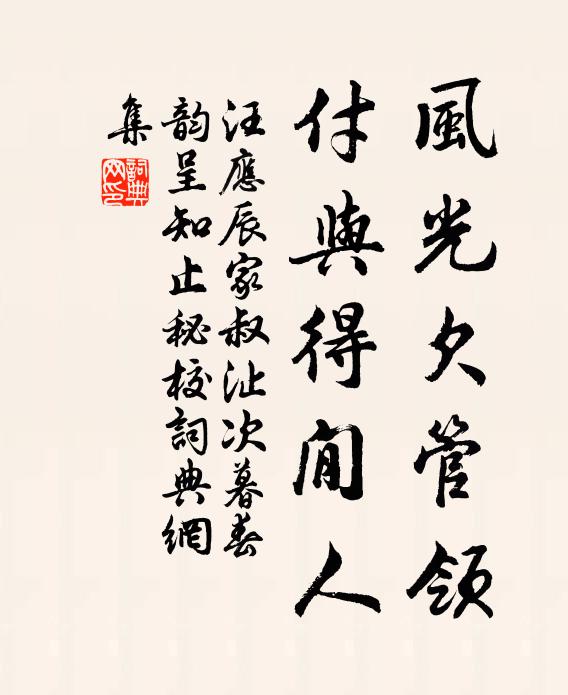 風光久管領
付與得閒人
汪應辰家叔沚次暮春
韵呈知止秘校詞典網
集
詞典網印